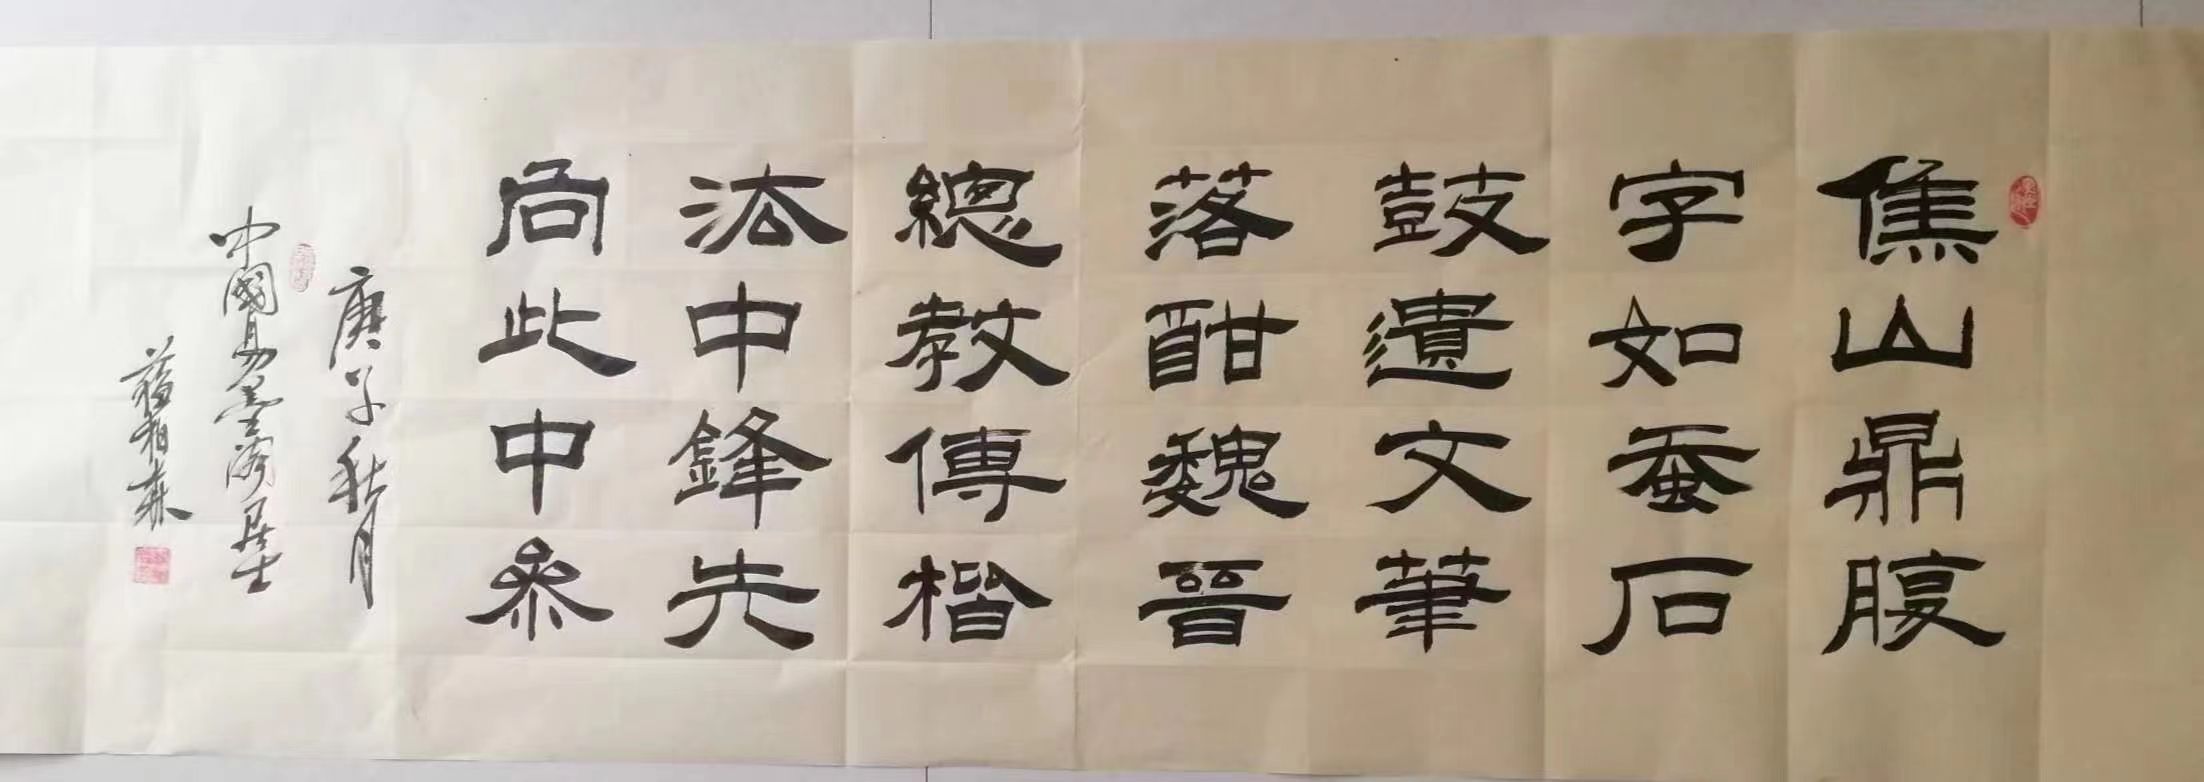 焦山鼎腹
字如蚕石
鼓遺文筆
落酣魏晉
總教傳楷
法中鋒先
向此中參
庚子秋月
中國易墨齋居士
蘇柏森